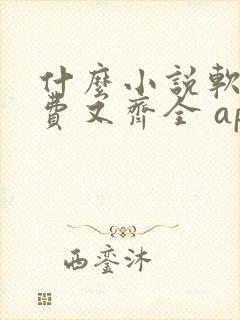 什麼小說軟
費又齊全 ap
西鑾沐